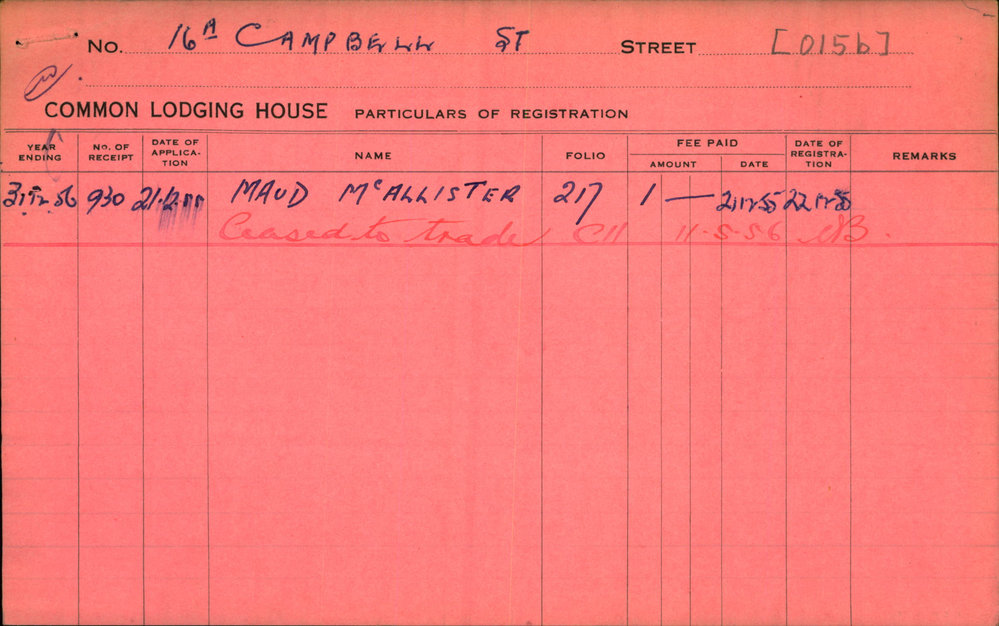 No. 16A CAMPBELL ST STREET [015b]
COMMON LODGING HOUSE PARTICULARS OF REGISTRATION
YEAR ENDING No. OF RECEIPT DATE OF APPLICA-TION NAME FOLIO FEE PAID AMOUNT DATE DATE OF REGISTRA-TION REMARKS
31 12 56 930 21.12.55 MAUD McALLISTER 217 1 — 21 12 55 22 12 55
Ceased to trade CH 11.5.56